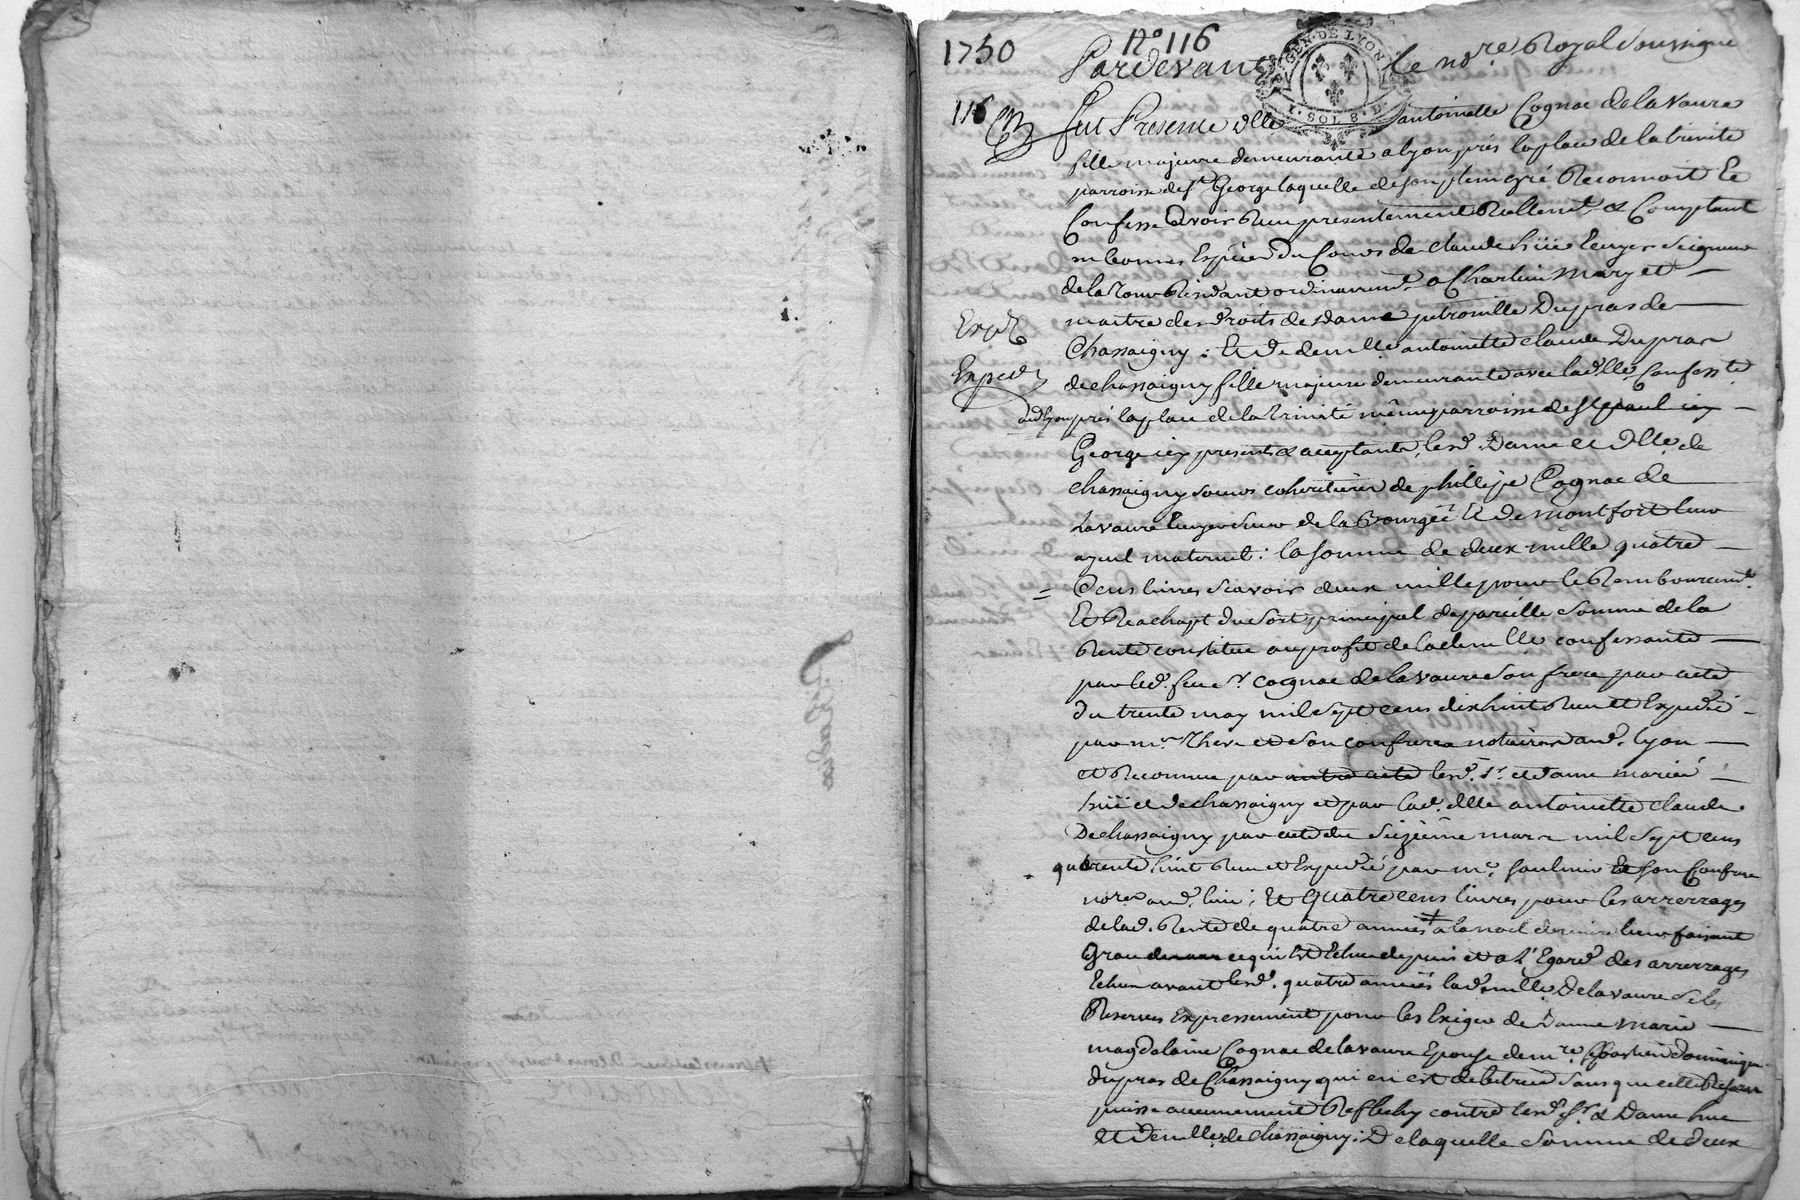 1750
N° 116
Pardevant Le no.re Royal soussigné
GEN. DE LYON
1. SOL 8. D.
116
fut Presente dlle antoinette Cognac de la vaure
fille majeure demeurante a lyon près la place de la trinité
parroisse de st George laquelle de son plein gré Reconnoit Et
Confesse avoir Reçu presentement Reellemt. & Comptant
en bonnes Espèces du Cours de claude hüe Ecuyer Seigneur
de la Tour Residant ordinairemt. a Charlieu Mary et
maitre des droits de dame petronille Dupras de
Chassaigny ; Et de demlle antoinette claude Dupras
de chassaigny fille majeure demeurante avec lad. dlle Confess.te
Expé
Expéd
aud. lyon près la place de la trinité même parroisse de st paul icy
George icy presents & acceptants, lesd. Dame et dlle de
chassaigny soeurs coheritieres de philippe Cognac de
Lavaure Ecuyer Sieur de la Bourgée Et de montfort leur
ayeul maternel : la somme de deux mille quatre
Cens livres sçavoir deux mille pour le Remboursemt.
Et Reachapt du Sort principal de pareille somme de la
Rente constituée au profit de lademlle confessante
par led. feu sr. Cognac de lavaure son frere par acte
du trente may mil sept cens dixhuit Reçu et Expedié
par me. et son confrere notaires aud. lyon
et Reconnue par autre acte lesd. sr. et dame mariés
hüe et de chassaigny et par lad. dlle antoinette claude
De chassaigny par acte du seizième mars mil sept cens
quarente huit Reçu et Expedié par me. Saulnier Et son Confrere
nores aud. lieu ; Et quatre cens livres pour les arrerages
de lad. Rente de quatre années a la noel derniere leur faisant
Grace de ce qui Est Echu depuis et a l'Egard des arrerages
Echus avant lesd. quatre années lad. demlle Delavaure se les
Reserves Expressement pour les Exiger de Dame marie
magdelaine Cognac de lavaure Epouse de mre. Sebastien dominique
dupras de Chassaigny qui en est debitrice sans que cette Reserve
puisse aucunement Reflechy contre lesd. sr. & Dame hue
et demlle. de chassaigny : De laquelle somme de deux